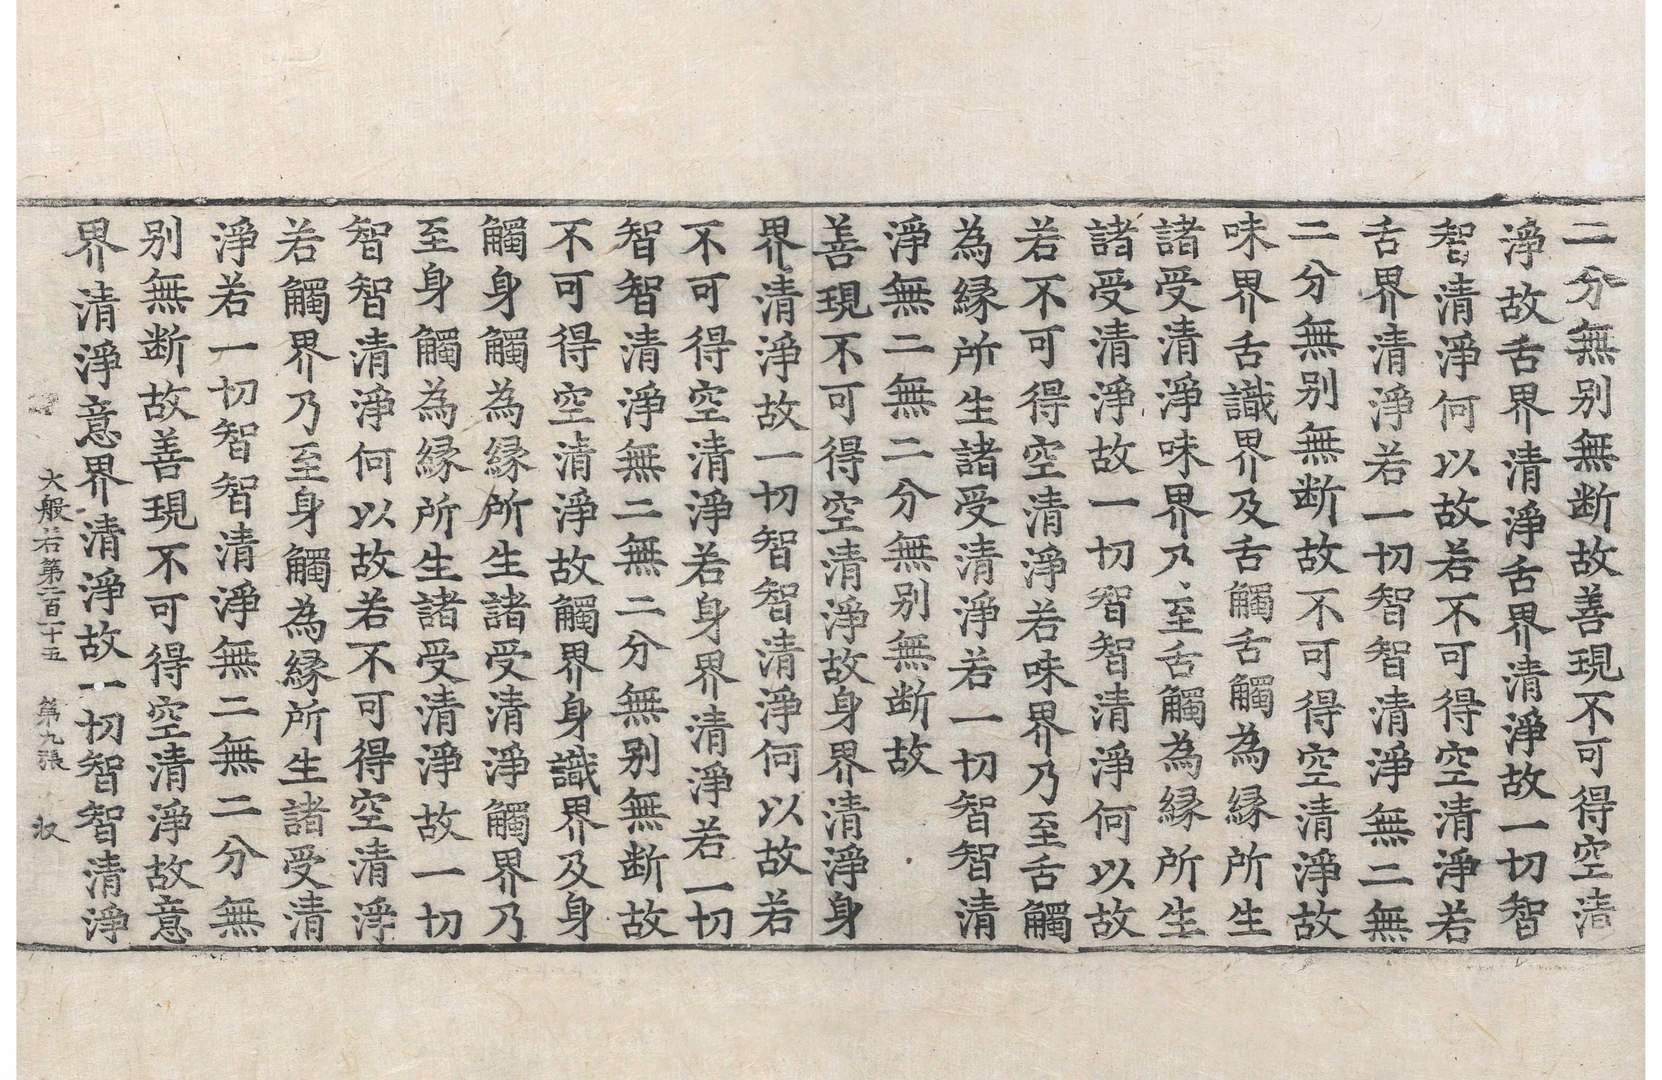 二分無别無断故善現不可得空清
淨故舌界清淨舌界清淨故一切智
智清淨何以故若不可得空清淨若
舌界清淨若一切智智清淨無二無
二分無别無断故不可得空清淨故
味界舌識界及舌觸舌觸為縁所生
諸受清淨味界乃至舌觸為縁所生
諸受清淨故一切智智清淨何以故
若不可得空清淨若味界乃至舌觸
為縁所生諸受清淨若一切智智清
淨無二無二分無别無断故
善現不可得空清淨故身界清淨身
界清淨故一切智智清淨何以故若
不可得空清淨若身界清淨若一切
智智清淨無二無二分無别無断故
不可得空清淨故觸界身識界及身
觸身觸為縁所生諸受清淨觸界乃
至身觸為縁所生諸受清淨故一切
智智清淨何以故若不可得空清淨
若觸界乃至身觸為縁所生諸受清
淨若一切智智清淨無二無二分無
别無断故善現不可得空清淨故意
界清淨意界清淨故一切智智清淨
大般若第二百二十五 第九張 收